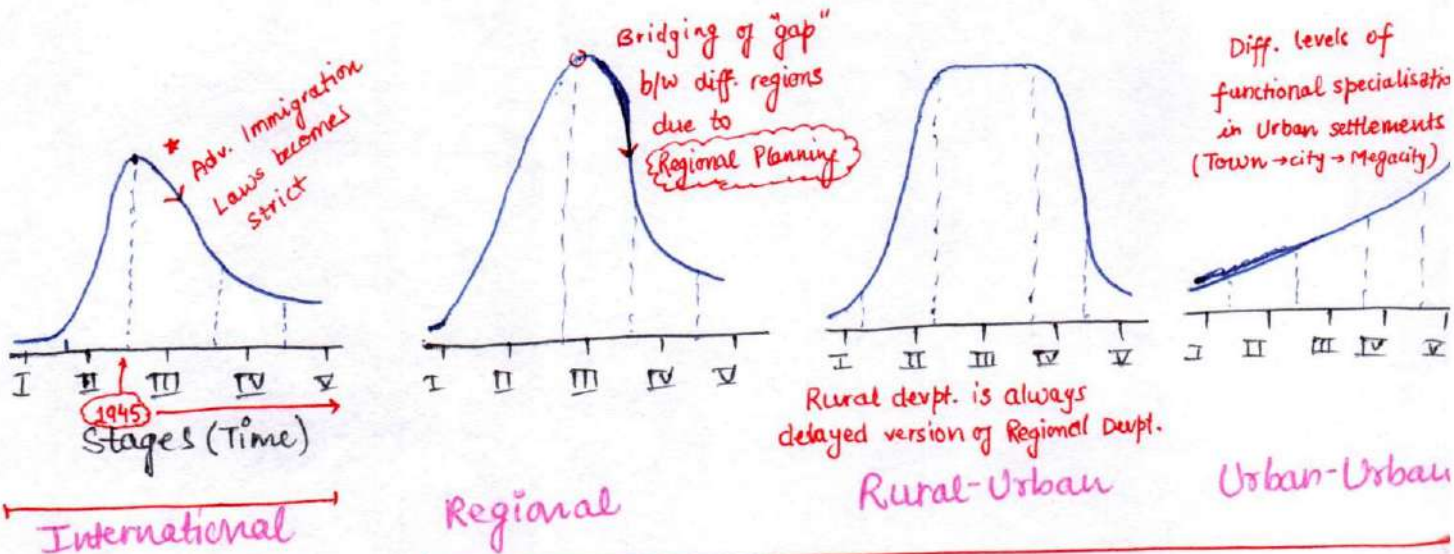 * Adv. Immigration
Laws becomes
Strict
I II III IV V
1945
Stages (Time)
International
Bridging of "gap"
b/w diff. regions
due to
Regional Planning
I II III IV V
Regional
I II III IV V
Rural devpt. is always
delayed version of Regional Devpt.
Rural-Urban
Diff. levels of
functional specialisatio
in Urban settlements
(Town → city → Megacity)
I II III IV V
Urban-Urban